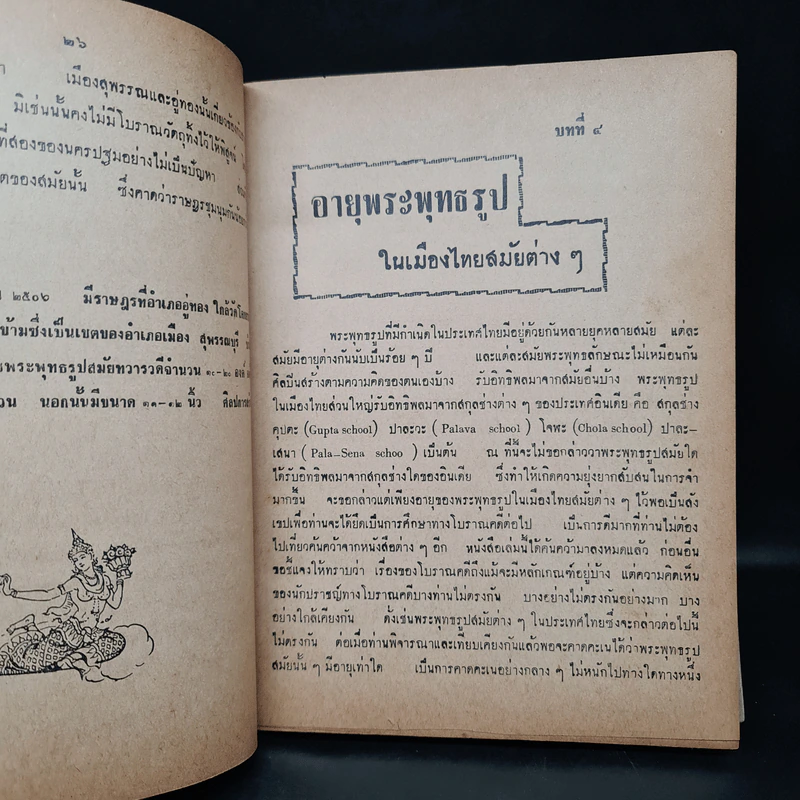 ๒๖
เมืองสุพรรณและอู่ทองนั้นเกี่ยวข้อง
มิเช่นนั้นคงไม่มีโบราณวัตถุทิ้งไว้ให้พิสูจน์
ที่สองของนครปฐมอย่างไม่เป็นปัญหา
ตของสมัยนั้น ซึ่งคาดว่าราษฎรชุมนุมกัน
๒๕๐๖ มีราษฎรที่อำเภออู่ทอง ใกล้วัด
ข้ามซึ่งเป็นเขตของอำเภอเมือง สุพรรณบุรี
พระพุทธรูปสมัยทวารวดีจำนวน ๑๙-๒๐ องค์
วน นอกนั้นมีขนาด ๑๑-๑๒ นิ้ว
บทที่ ๔
อายุพระพุทธรูป
ในเมืองไทยสมัยต่าง ๆ
พระพุทธรูปที่มีกำเนิดในประเทศไทยมีอยู่ด้วยกันหลายยุคหลายสมัย แต่ละ
สมัยมีอายุต่างกันนับเป็นร้อย ๆ ปี และแต่ละสมัยพระพุทธลักษณะไม่เหมือนกัน
ศิลปินสร้างตามความคิดของตนเองบ้าง รับอิทธิพลมาจากสมัยอื่นบ้าง พระพุทธรูป
ในเมืองไทยส่วนใหญ่รับอิทธิพลมาจากสกุลช่างต่าง ๆ ของประเทศอินเดีย คือ สกุลช่าง
คุปตะ (Gupta school) ปาละวะ ( Palava school ) โจฬะ (Chola school) ปาละ-
เสนา ( Pala-Sena schoo ) เป็นต้น ณ ที่นี้จะไม่ขอกล่าวว่าพระพุทธรูปสมัยใด
ได้รับอิทธิพลมาจากสกุลช่างใดของอินเดีย ซึ่งทำให้เกิดความยุ่งยากสับสนในการจำ
มากขึ้น จะขอกล่าวแต่เพียงอายุของพระพุทธรูปในเมืองไทยสมัยต่าง ๆ ไว้พอเป็นสัง
เขปเพื่อท่านจะได้ยึดเป็นการศึกษาทางโบราณคดีต่อไป เป็นการดีมากที่ท่านไม่ต้อง
ไปเที่ยวค้นคว้าจากหนังสือต่าง ๆ อีก หนังสือเล่มนี้ได้ค้นคว้ามาลงหมดแล้ว ก่อนอื่น
ขอชี้แจงให้ทราบว่า เรื่องของโบราณคดีถึงแม้จะมีหลักเกณฑ์อยู่บ้าง แต่ความคิดเห็น
ของนักปราชญ์ทางโบราณคดีบางท่านไม่ตรงกัน บางอย่างไม่ตรงกันอย่างมาก บาง
อย่างใกล้เคียงกัน ดั่งเช่นพระพุทธรูปสมัยต่าง ๆ ในประเทศไทยซึ่งจะกล่าวต่อไปนี้
ไม่ตรงกัน ต่อเมื่อท่านพิจารณาและเทียบเคียงกันแล้วพอจะคาดคะเนได้ว่าพระพุทธรูป
สมัยนั้น ๆ มีอายุเท่าใด เป็นการคาดคะเนอย่างกลาง ๆ ไม่หนักไปทางใดทางหนึ่ง